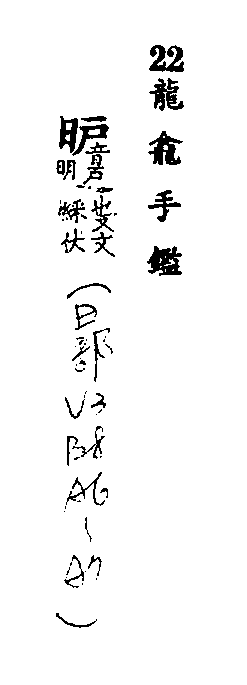 22龍龕手鑑
昈音戶明也又文綵伏
(日部 V3 B8 A6~A7)